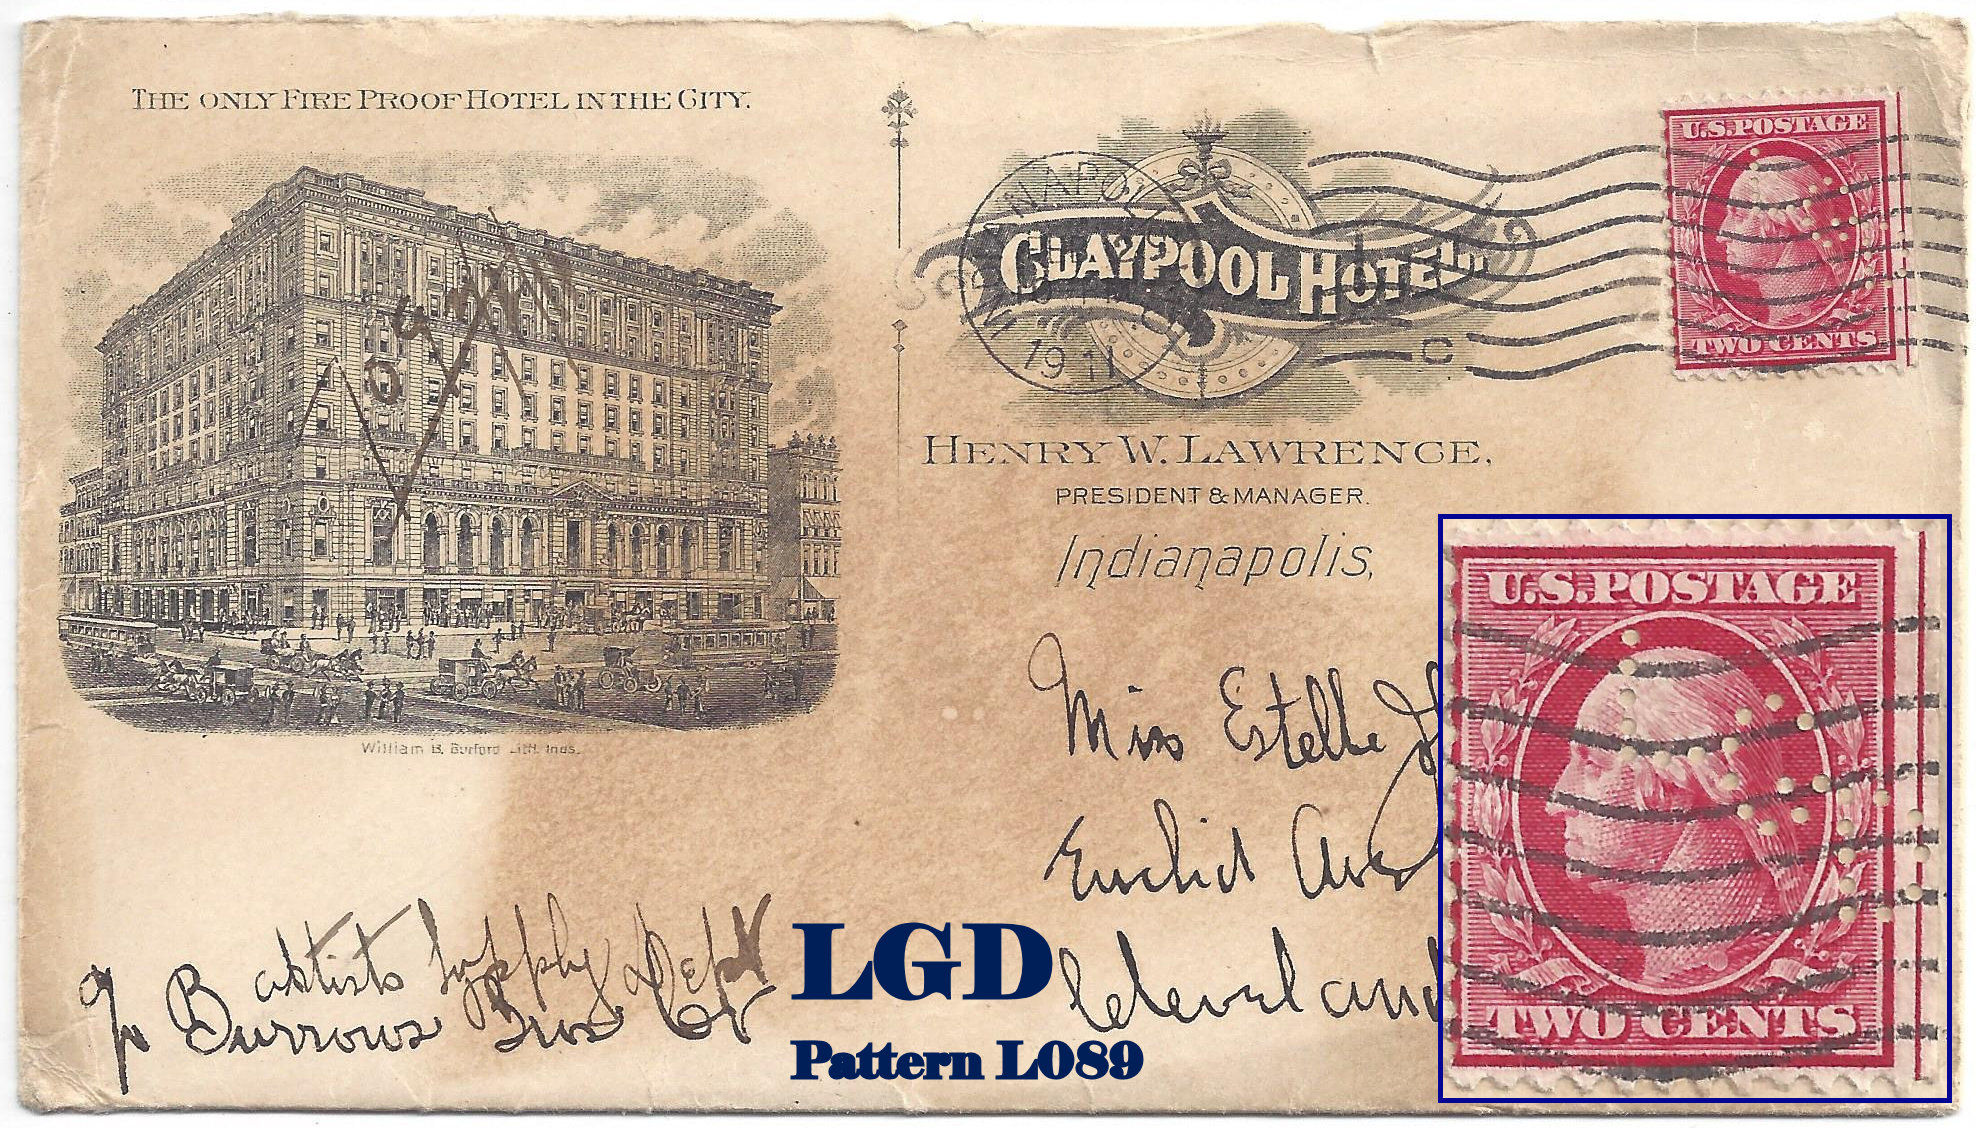 THE ONLY FIRE PROOF HOTEL IN THE CITY.
CLAYPOOL HOTEL.
HENRY W. LAWRENCE,
PRESIDENT & MANAGER.
Indianapolis,
William B. Burford Lith. Inds.
U.S. POSTAGE
TWO CENTS
1911
Miss Estelle
Euclid Ave
Cleveland
Baptists Supply Dept
Burrows Bros Co
LGD
Pattern L089
U.S. POSTAGE
TWO CENTS